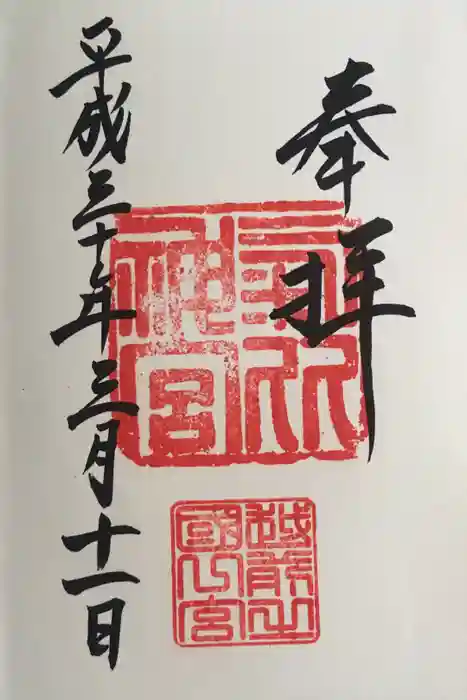 奉拝
神宮
越前
國宮
平成三十年三月十一日